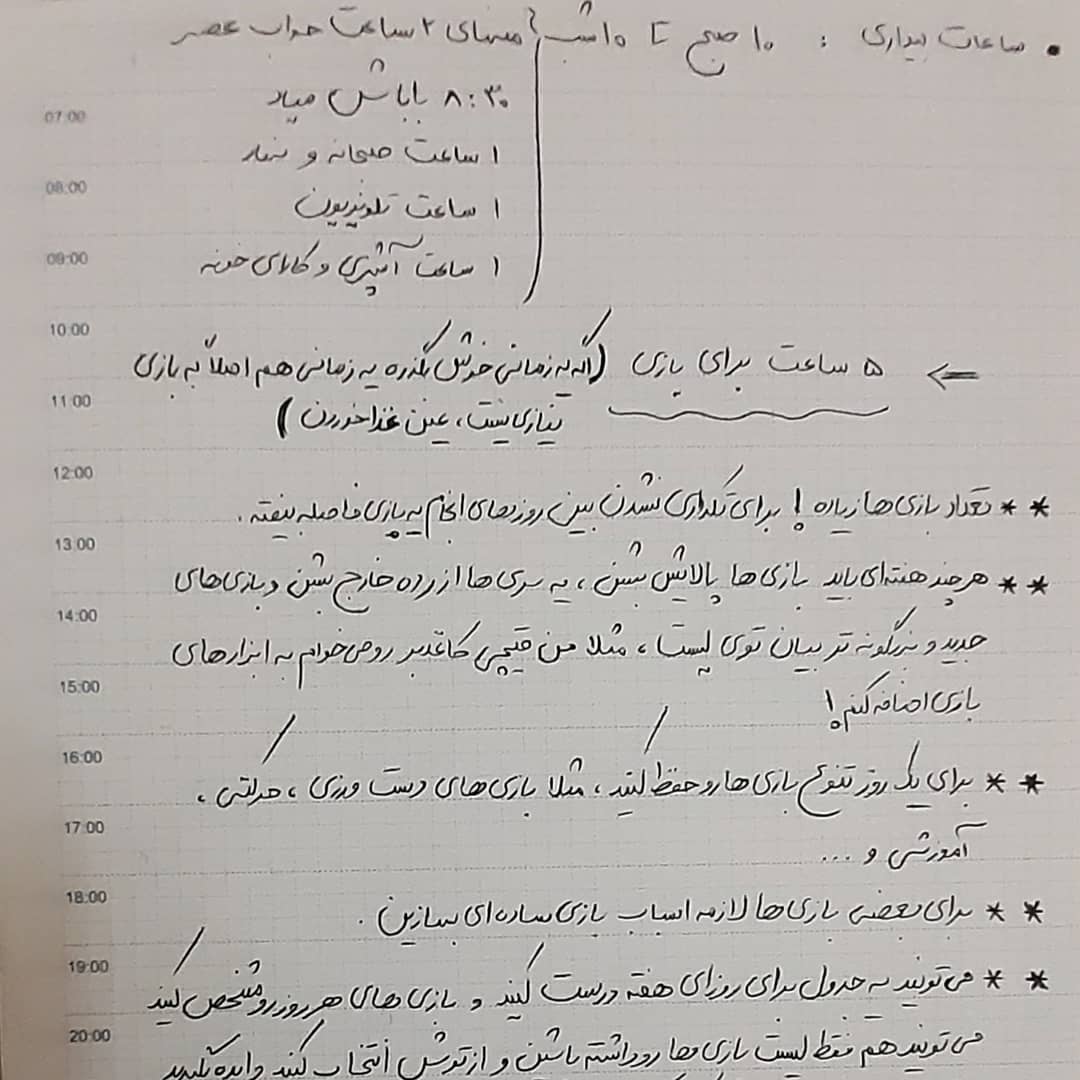 • ساعات بیداری : ۱۰ صبح تا ۱۰ شب منهای ۲ ساعت خواب عصر
۸:۳۰ باباش میاد
۱ ساعت صبحانه و نهار
۱ ساعت تلویزیون
۱ ساعت آشپزی و کارای خونه
۵ ساعت برای بازی (اگه یه زمانی خودش بگذره یه زمانی هم اصلاً به بازی
نیازی نیست، عین غذا خوردن)
** تعداد بازی‌ها زیاده! برای تکراری نشدن بین روزهای انجام یه بازی فاصله بیفته.
** هر چند هفته‌ای باید بازی‌ها پالایش بشن، یه سری‌ها از رده خارج بشن و بازی‌های
جدید و بزرگونه‌تر بیان توی لیست، مثلا من قیچی کاغذبر رو می‌خوام به ابزارهای
بازی اضافه کنم!
** برای یک روز تنوع بازی‌ها رو حفظ کنید، مثلا بازی‌های دست ورزی، حرکتی،
آموزشی و ...
** برای بعضی بازی‌ها لازمه اسباب بازی ساده‌ای بسازین.
** می‌تونید یه جدول برای روزای هفته درست کنید و بازی‌های هر روز رو مشخص کنید
می‌تونید هم فقط لیست بازی‌ها رو داشته باشین و از توش انتخاب کنید و ایده بگیرید
07:00
08:00
09:00
10:00
11:00
12:00
13:00
14:00
15:00
16:00
17:00
18:00
19:00
20:00